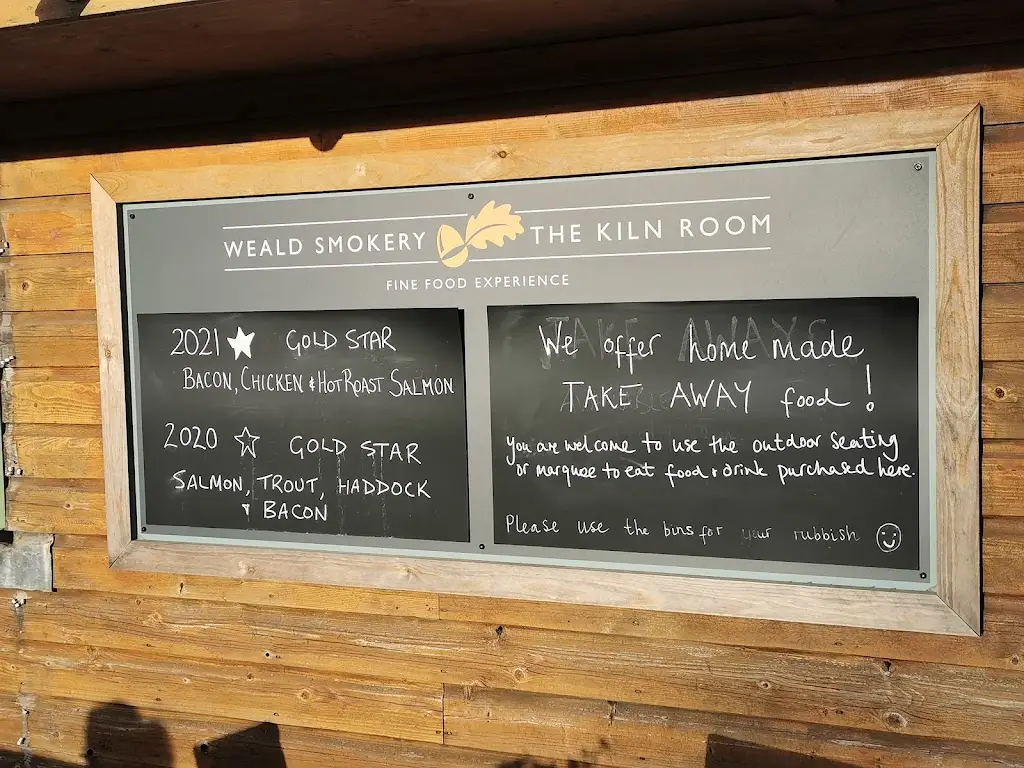 WEALD SMOKERY THE KILN ROOM
FINE FOOD EXPERIENCE
2021 GOLD STAR
BACON, CHICKEN & HOT ROAST SALMON
2020 GOLD STAR
SALMON, TROUT, HADDOCK
& BACON
We offer home made
TAKE AWAY food !
You are welcome to use the outdoor seating
or marquee to eat food & drink purchased here.
Please use the bins for your rubbish